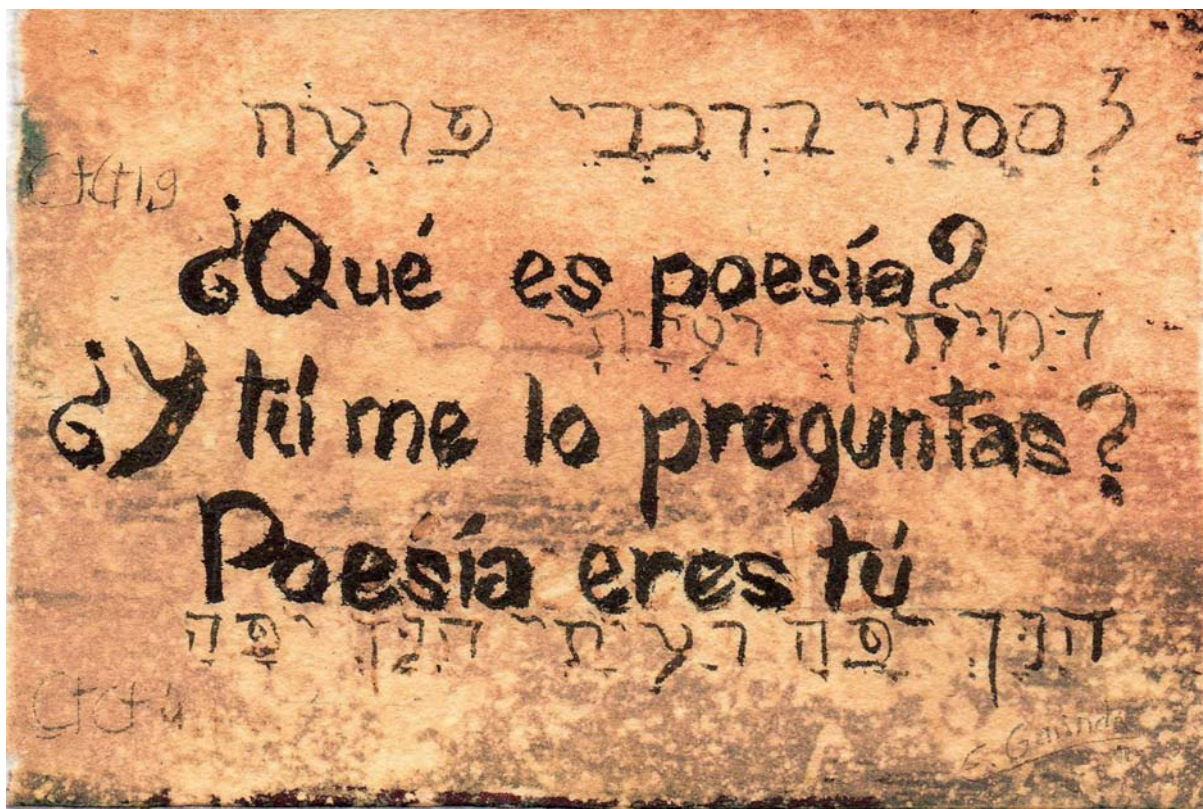 לְסֻסָתִי בְּרִכְבֵי פַרְעֹה
CtCt 1,9
¿Qué es poesía?
דִּמִּיתִיךְ רַעְיָתִי
¿Y tú me lo preguntas?
Poesía eres tú
הִנָּךְ יָפָה רַעְיָתִי הִנָּךְ יָפָה